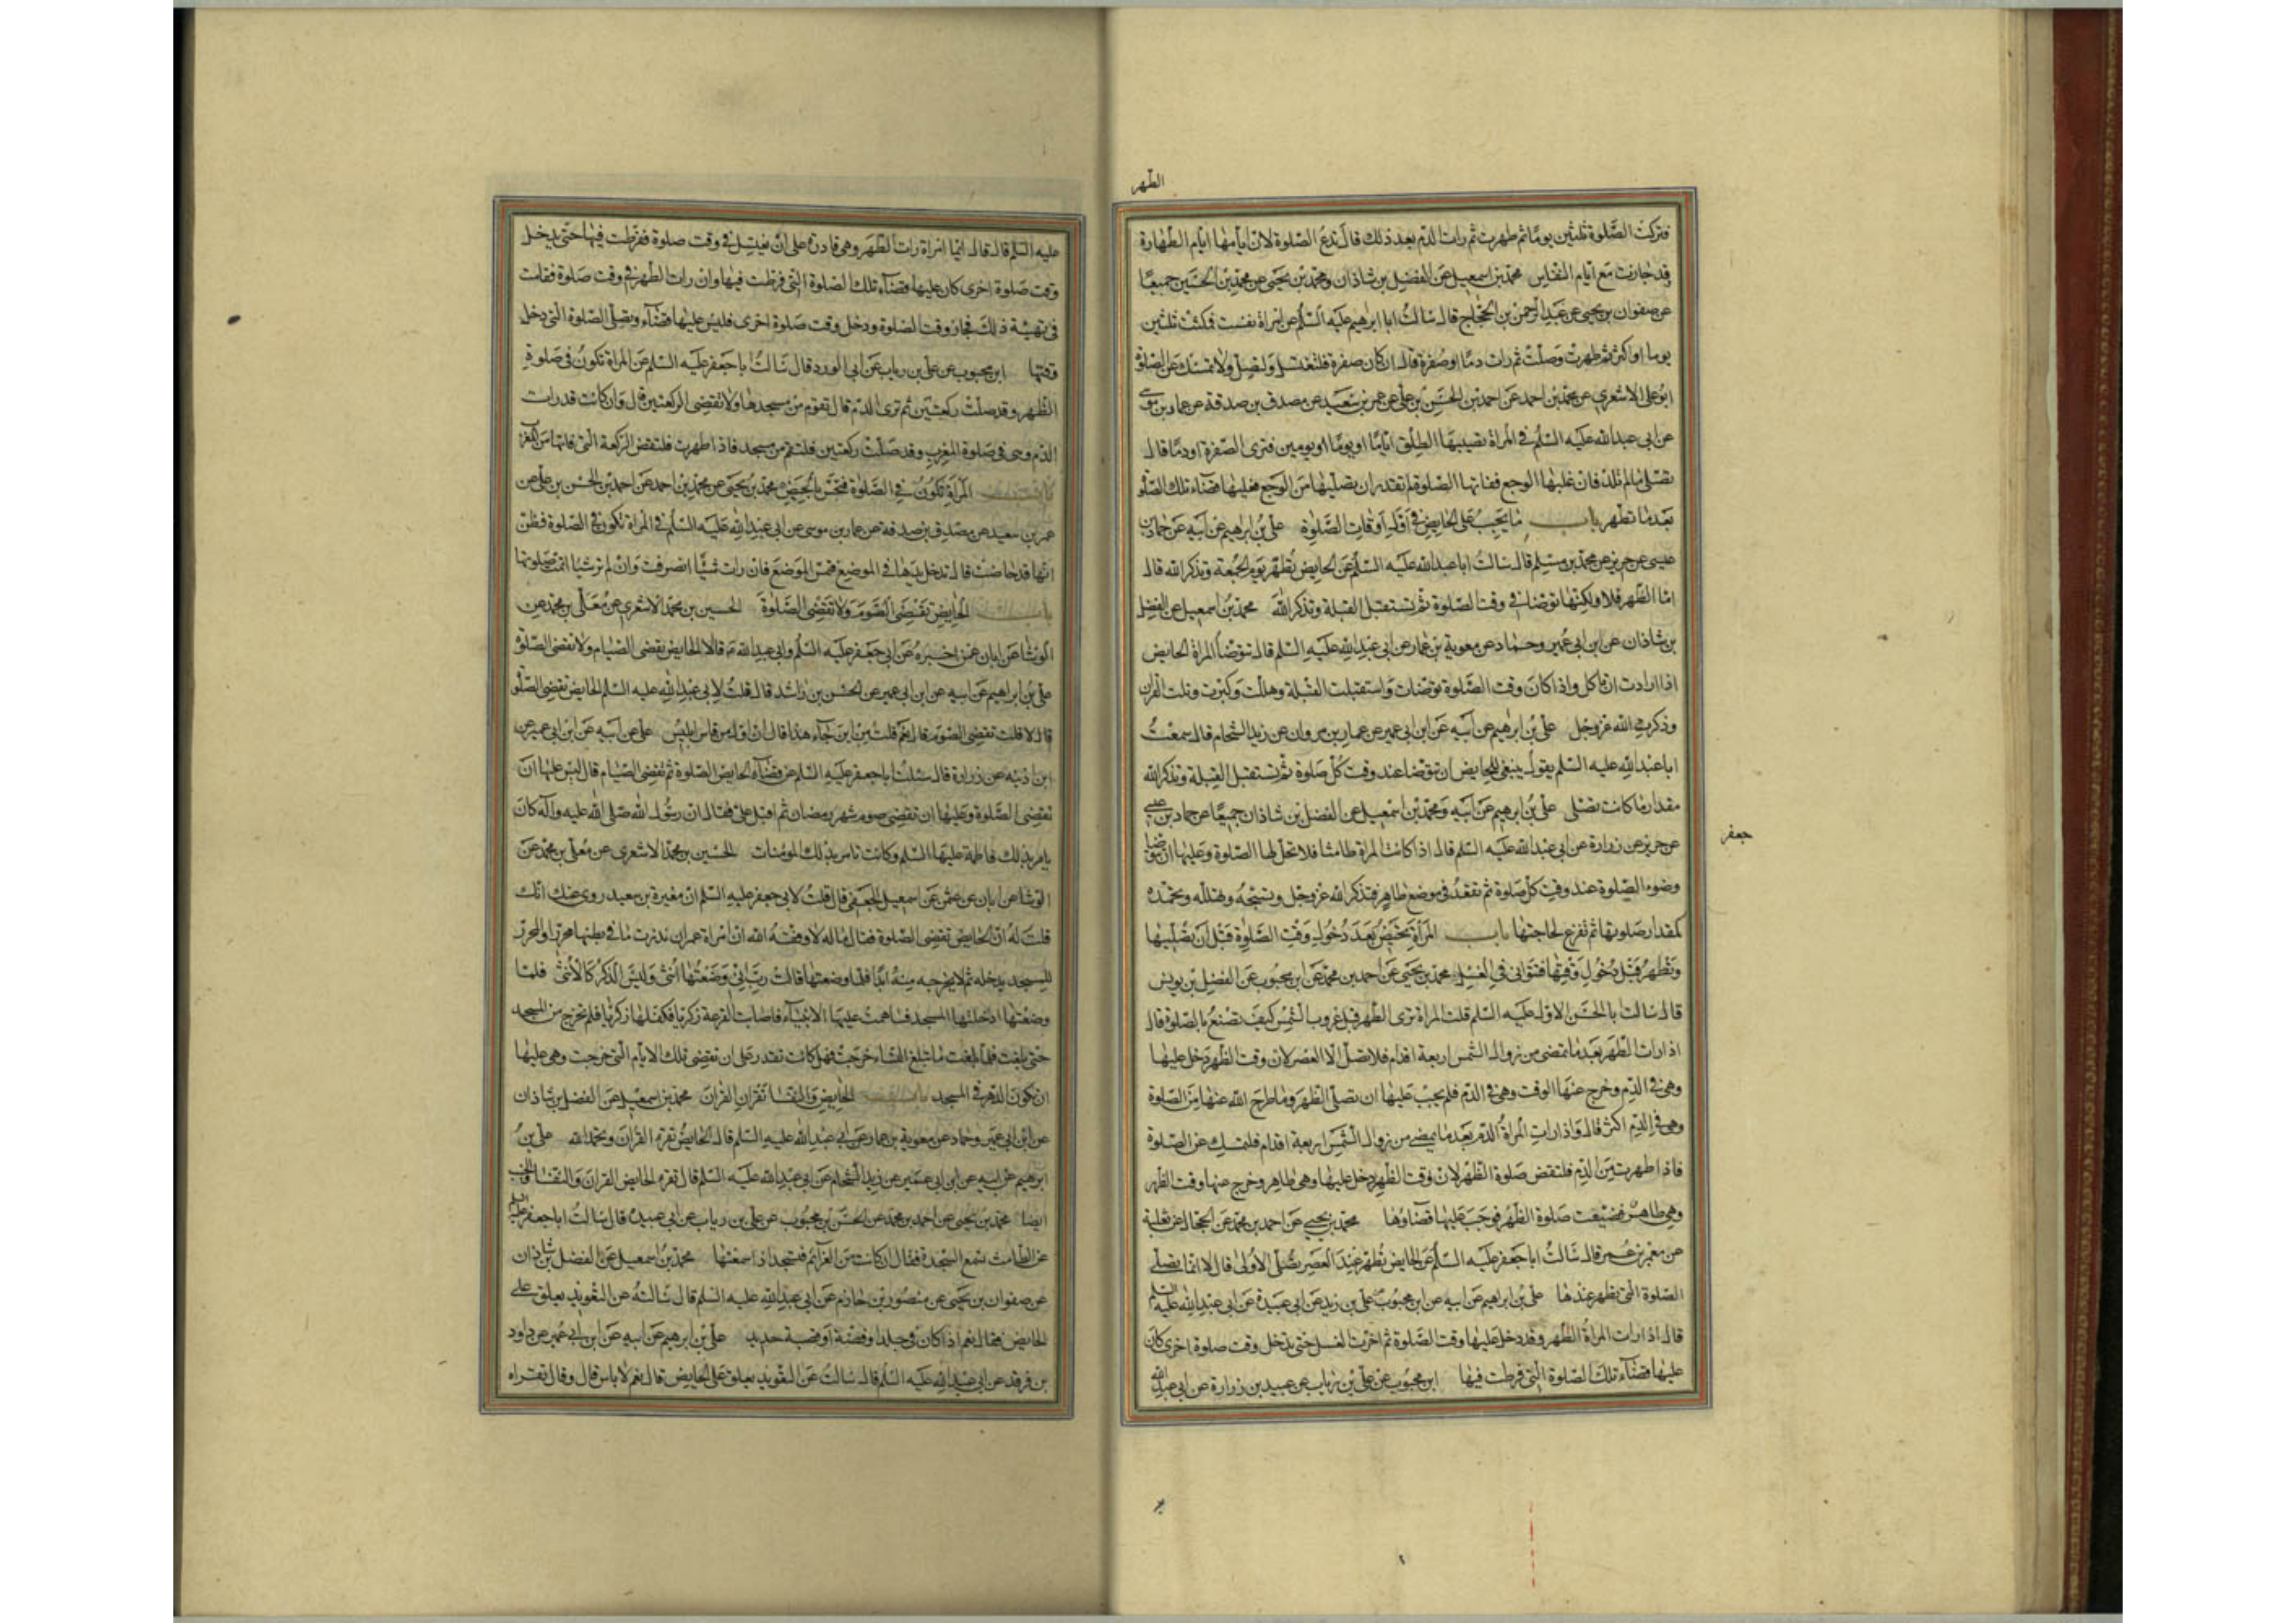 الطهر
فتركت الصلوة ثلثين يوما ثم طهرت ثم رات الدم بعد ذلك قال تدع الصلوة لان ايامها ايام الطهارة
قد جازت مع ايام النفاس محمد بن اسمعيل عن الفضل بن شاذان ومحمد بن يحيى عن محمد بن الحسين جميعا
عن صفوان بن يحيى عن عبد الرحمن بن الحجاج قال سالت ابا ابرهيم عليه السلم عن امراة نفست فمكثت ثلثين
يوما او اكثر ثم طهرت وصلت ثم رات دما او صفرة قال ان كان صفرة فلتغتسل ولتصل ولا تمسك عن الصلوة
ابو على الاشعرى عن محمد بن احمد عن احمد بن الحسن بن على عن عمرو بن سعيد عن مصدق بن صدقة عن عمار بن موسى
عن ابى عبد الله عليه السلم فى المراة يصيبها الطلق اياما او يوما او يومين فترى الصفرة او دما قال
تصلى ما لم تلد فان غلبها الوجع ففاتها الصلوة لم تقدر ان تصليها من الوجع فعليها قضاء تلك الصلوة
بعد ما تطهر باب ما يجب على الحايض فى اوقات الصلوة على بن ابرهيم عن ابيه عن حماد بن
عيسى عن حريز عن محمد بن مسلم قال سالت ابا عبد الله عليه السلم عن الحايض تطهر يوم الجمعة وتذكر الله قال
اما الطهر فلا ولكنها توضا فى وقت الصلوة ثم تستقبل القبلة وتذكر الله محمد بن اسمعيل عن الفضل
بن شاذان عن ابن ابى عمير وحماد عن معوية بن عمار عن ابى عبد الله عليه السلم قال تتوضا المراة الحايض
اذا ارادت ان تاكل واذا كان وقت الصلوة توضات واستقبلت القبلة وهللت وكبرت وتلت القران
وذكرت الله عز وجل على بن ابرهيم عن ابيه عن ابن ابى عمير عن عمار بن مروان عن زيد الشحام قال سمعت
ابا عبد الله عليه السلم يقول ينبغى للحايض ان توضا عند وقت كل صلوة ثم تستقبل القبلة وتذكر الله
مقدار ما كانت تصلى على بن ابرهيم عن ابيه ومحمد بن اسمعيل عن الفضل بن شاذان جميعا عن حماد بن عيسى
جعفر
عن حريز عن زرارة عن ابى عبد الله عليه السلم قال اذا كانت المراة طامثا فلا تحل لها الصلوة وعليها ان توضا
وضوء الصلوة عند وقت كل صلوة ثم تقعد فى موضع طاهر فتذكر الله عز وجل وتسبحه وتهلله وتحمده
كمقدار صلوتها ثم تفرغ لحاجتها باب المراة تحيض بعد دخول وقت الصلوة قبل ان تصليها
وتطهر قبل دخول وقتها فتتوانى فى الغسل محمد بن يحيى عن احمد بن محمد عن ابن محبوب عن الفضل بن يونس
قال سالت ابا الحسن الاول عليه السلم قلت المراة ترى الطهر قبل غروب الشمس كيف تصنع بالصلوة قال
اذا رات الطهر بعد ما تمضى من زوال الشمس اربعة اقدام فلا تصل الا العصر لان وقت الظهر دخل عليها
وهى فى الدم وخرج عنها الوقت وهى فى الدم فلم يجب عليها ان تصلى الظهر وما طرح الله عنها من الصلوة
وهى فى الدم اكثر قال واذا رات المراة الدم بعد ما يمضى من زوال الشمس اربعة اقدام فلتمسك عن الصلوة
فاذا طهرت من الدم فلتقض صلوة الظهر لان وقت الظهر دخل عليها وهى طاهر وخرج عنها وقت الظهر
وهى طاهر فضيعت صلوة الظهر فوجب عليها قضاوها محمد بن يحيى عن احمد بن محمد عن الحجال عن ثعلبة
عن معمر بن عمر قال سالت ابا جعفر عليه السلم عن الحايض تطهر عند العصر تصلى الاولى قال لا انما يصلى
الصلوة التى تطهر عندها على بن ابرهيم عن ابيه عن ابن محبوب عن على بن زيد عن ابى عبيدة عن ابى عبد الله عليه السلم
قال اذا رات المراة الطهر وقد دخل عليها وقت الصلوة ثم اخرت الغسل حتى تدخل وقت صلوة اخرى كان
عليها قضاء تلك الصلوة التى فرطت فيها ابن محبوب عن على بن رياب عن عبيد بن زرارة عن ابى عبد الله
عليه السلم قال قال ايما امراة رات الطهر وهى قادرة على ان تغتسل فى وقت صلوة ففرطت فيها حتى يدخل
وقت صلوة اخرى كان عليها قضاء تلك الصلوة التى فرطت فيها وان رات الطهر فى وقت صلوة فقامت
فى تهيئة ذلك فجاز وقت الصلوة ودخل وقت صلوة اخرى فليس عليها قضاء وتصلى الصلوة التى دخل
وقتها ابن محبوب عن على بن رياب عن ابى الورد قال سالت ابا جعفر عليه السلم عن المراة تكون فى صلوة
الظهر وقد صلت ركعتين ثم ترى الدم قال تقوم من مسجدها ولا تقضى الركعتين قال وان كانت قد رات
الدم وهى فى صلوة المغرب وقد صلت ركعتين فلتقم من مسجد فاذا طهرت فلتقض الركعة التى فاتتها من المغرب
باب المراة تكون فى الصلوة فتحس بالحيض محمد بن يحيى عن محمد بن احمد عن احمد بن الحسن بن على عن
عمرو بن سعيد عن مصدق بن صدقة عن عمار بن موسى عن ابى عبد الله عليه السلم فى المراة تكون فى الصلوة فتظن
انها قد حاضت قال تدخل يدها فى الموضع فتمس الموضع فان رات شيئا انصرفت وان لم تر شيئا اتمت صلوتها
باب الحايض تقضى الصوم ولا تقضى الصلوة الحسين بن محمد الاشعرى عن معلى بن محمد عن
الوشا عن ابان عمن اخبره عن ابى جعفر عليه السلم وابى عبد الله ع قالا الحايض تقضى الصيام ولا تقضى الصلوة
على بن ابراهيم عن ابيه عن ابن ابى عمير عن الحسن بن راشد قال قلت لابى عبد الله عليه السلم الحايض تقضى الصلوة
قال لا قلت تقضى الصوم قال نعم قلت من اين جاء هذا قال ان اول من قاس ابليس على عن ابيه عن ابن ابى عمير عن
ابن اذينه عن زرارة قال سالت ابا جعفر عليه السلم عن قضاء الحايض الصلوة ثم تقضى الصيام قال ليس عليها ان
تقضى الصلوة وعليها ان تقضى صوم شهر رمضان ثم اقبل على فقال ان رسول الله صلى الله عليه واله كان
يامر بذلك فاطمة عليها السلم وكانت تامر بذلك المومنات الحسين بن محمد الاشعرى عن معلى بن محمد عن
الوشا عن ابان عن عثمن عن اسمعيل الجعفى قال قلت لابى جعفر عليه السلم ان مغيرة بن سعيد روى عنك انك
قلت له ان الحايض تقضى الصلوة فقال ما له لا وفقه الله ان امراة عمران نذرت ما فى بطنها محررا والمحرر
للمسجد يدخله ثم لا يخرج منه ابدا فلما وضعتها قالت رب انى وضعتها انثى وليس الذكر كالانثى فلما
وضعتها ادخلتها المسجد فساهمت عليها الانبياء فاصابت القرعة زكريا فكفلها زكريا فلم تخرج من المسجد
حتى بلغت فلما بلغت ما تبلغ النساء خرجت فهل كانت تقدر على ان تقضى تلك الايام التى خرجت وهى عليها
ان تكون الدهر فى المسجد باب الحايض والنفسا تقران القران محمد بن اسمعيل عن الفضل بن شاذان
عن ابن ابى عمير وحماد عن معوية بن عمار عن ابى عبد الله عليه السلم قال الحايض تقرء القران وتحمد الله على بن
ابرهيم عن ابيه عن ابن ابى عمير عن زيد الشحام عن ابى عبد الله عليه السلم قال تقرء الحايض القران والنفسا والجنب
ايضا محمد بن يحيى عن احمد بن محمد عن الحسن بن محبوب عن على بن رياب عن ابى عبيدة قال سالت ابا جعفر عليه السلم
عن الطامث تسمع السجدة فقال ان كانت من العزايم فتسجد اذا سمعتها محمد بن اسمعيل عن الفضل بن شاذان
عن صفوان بن يحيى عن منصور بن حازم عن ابى عبد الله عليه السلم قال سالته عن التعويذ يعلق على
الحايض فقال نعم اذا كان فى جلد او فضة او قصبة حديد على بن ابرهيم عن ابيه عن ابن ابى عمير عن داود
بن فرقد عن ابى عبد الله عليه السلم قال سالت عن التعويذ يعلق على الحايض قال نعم لا باس قال وقال تقراه